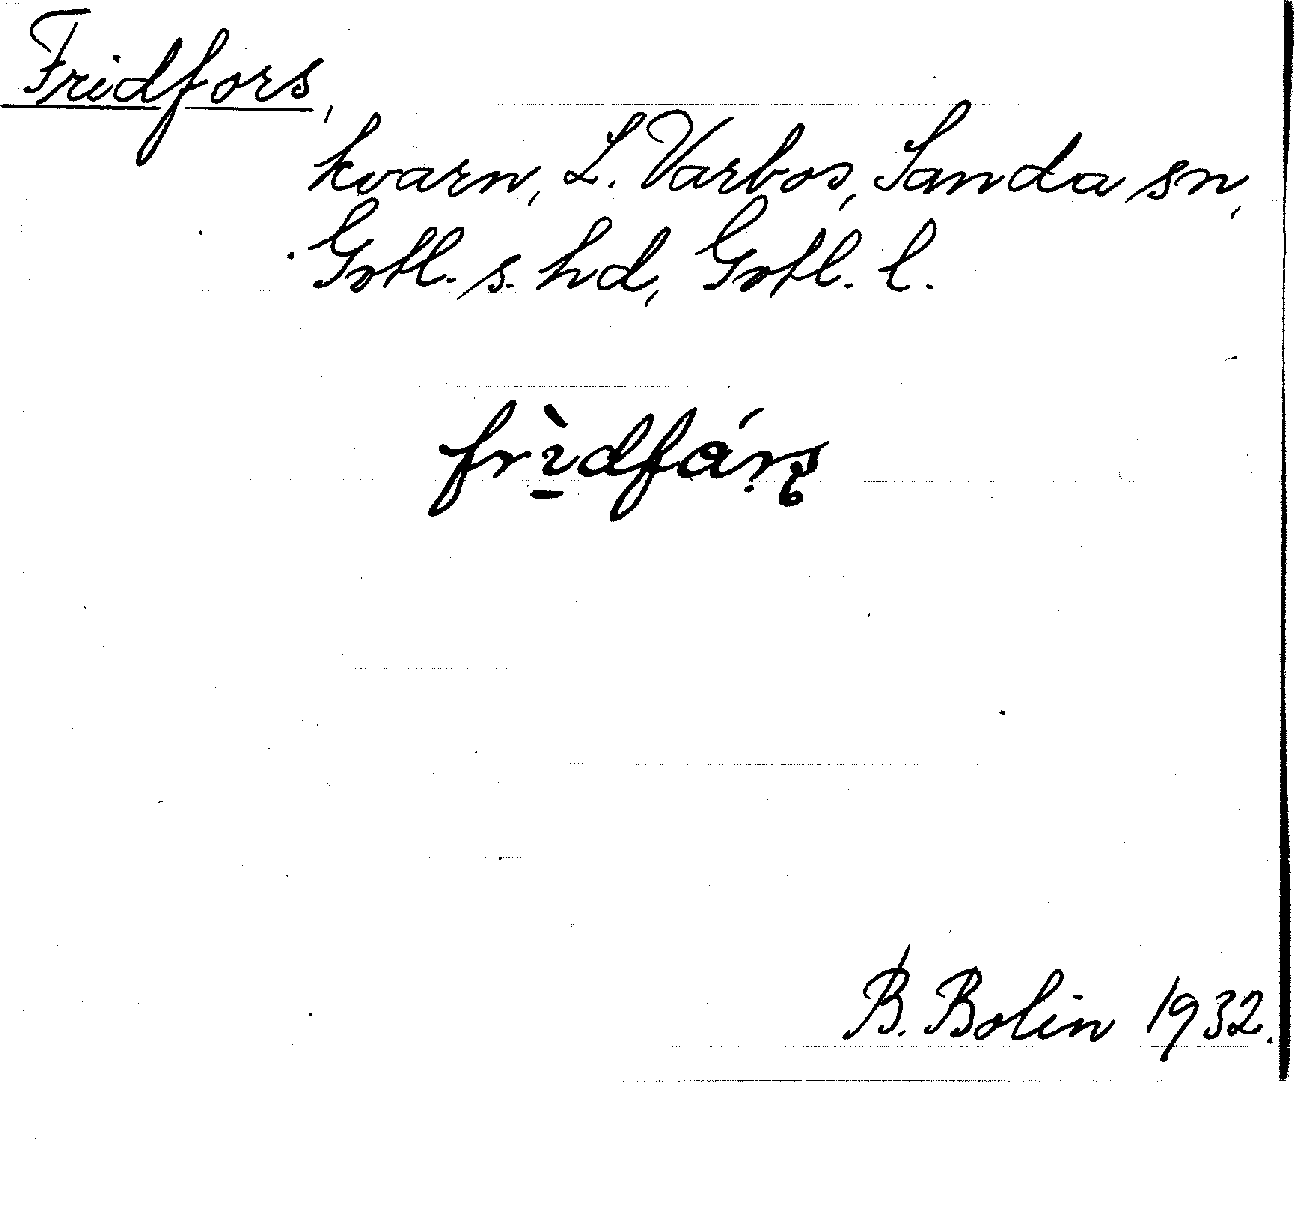 Fridfors,
kvarn, L. Varbos, Sanda sn,
Gotl. s. hd, Gotl. l.
frı̱̀dfáṛş
B. Bolin 1932.